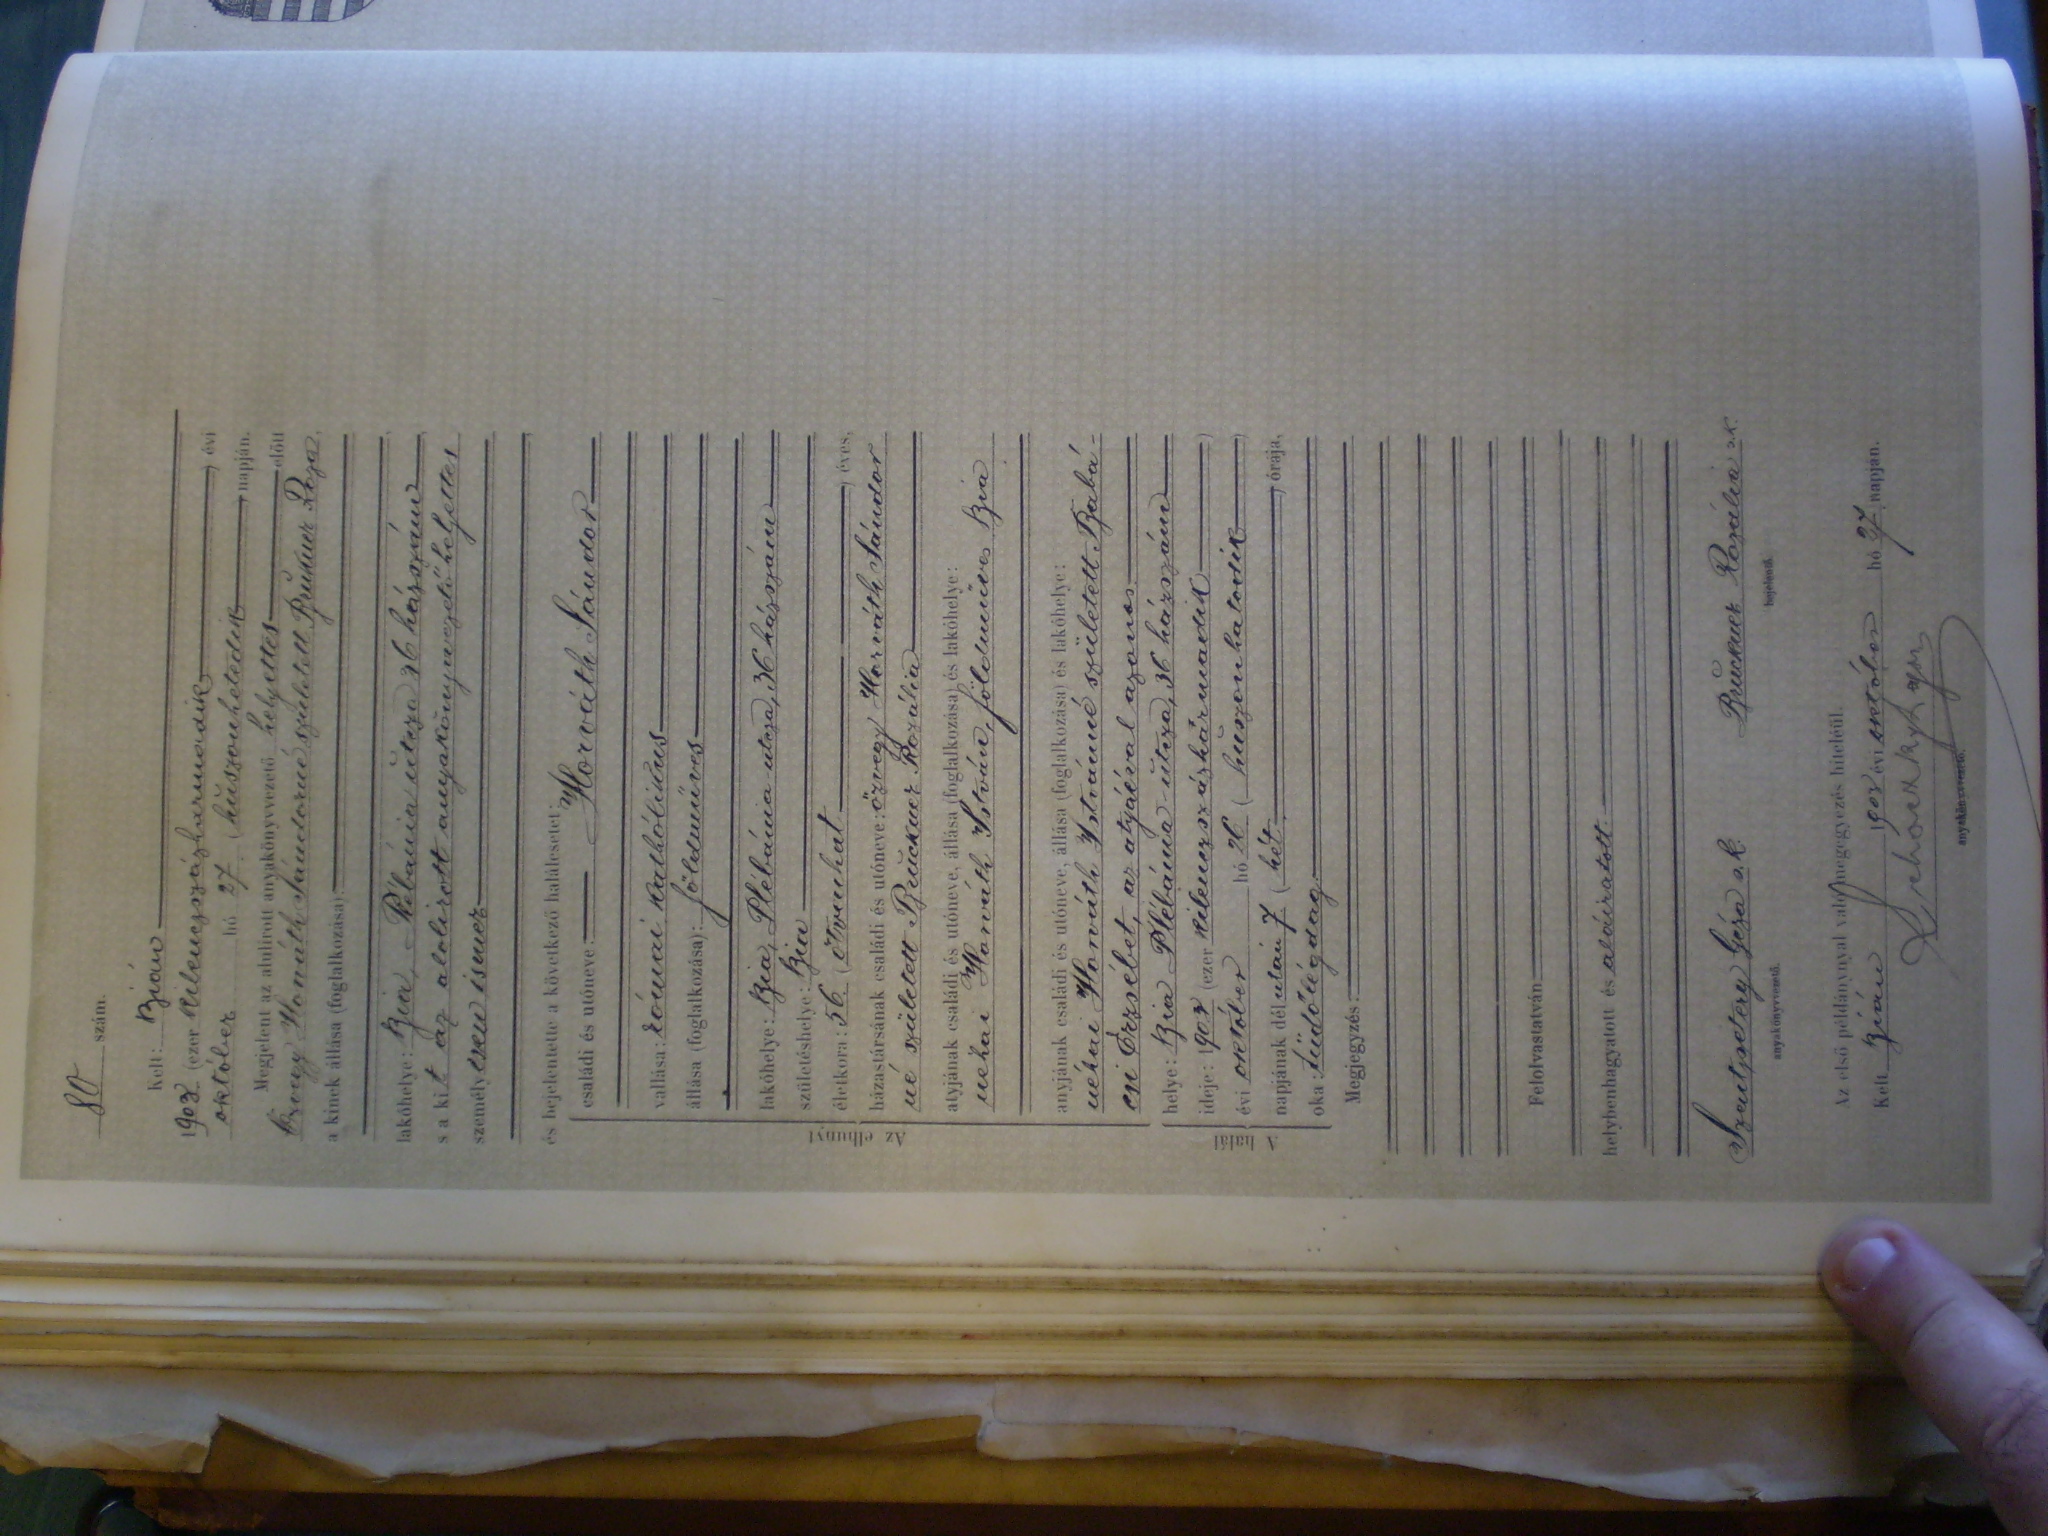 80 szám.
Kelt: Bián
1903. (ezer kilenczszázharmadik) évi
október hó 27. (huszonhetedik) napján.
Megjelent az alulirott anyakönyvezető helyettes előtt
özvegy Horváth Sándorné született Pruckner Roza,
a kinek állása (foglalkozása):
lakóhelye: Bia, Plébánia útsza 36 házszám
s a kit az alolirott anyakönyvvezető helyettes
személyesen ismer
és bejelentette a következő halálesetet:
Az elhunyt
családi és utóneve: Horváth Sándor
vallása: római katholikus
állása (foglalkozása): földmüves
lakóhelye: Bia, Plébánia-utsza, 36 házszám
születéshelye: Bia
életkora: 56 (ötvenhat) éves,
házastársának családi és utóneve: özvegy Horváth Sándor
né született Pruckner Rozália
atyjának családi és utóneve, állása (foglalkozása) és lakóhelye:
néhai Horváth István, földmüves Bia
anyjának családi és utóneve, állása (foglalkozása) és lakóhelye:
néhai Horváth Istvánné született Babá-
csi Erzsébet, az atyáéval azonos.
A halál
helye: Bia Plébánia-útsza, 36 házszám
ideje: 1903 (ezer kilenczszázhármadik)
évi október hó 26 (huszonhatodik)
napjának dél után 7 (hét) órája,
oka: tüdőlégdag.
Megjegyzés:
Felolvastatván,
helybenhagyatott és aláiratott.
Géza s.k. Pruckner Rozália s.k.
anyakönyvvezető. bejelentő.
Az első példánynyal való megegyezés hiteléül.
Kelt Bián 1903 évi október hó 27 napján.
anyakönyvvezető.